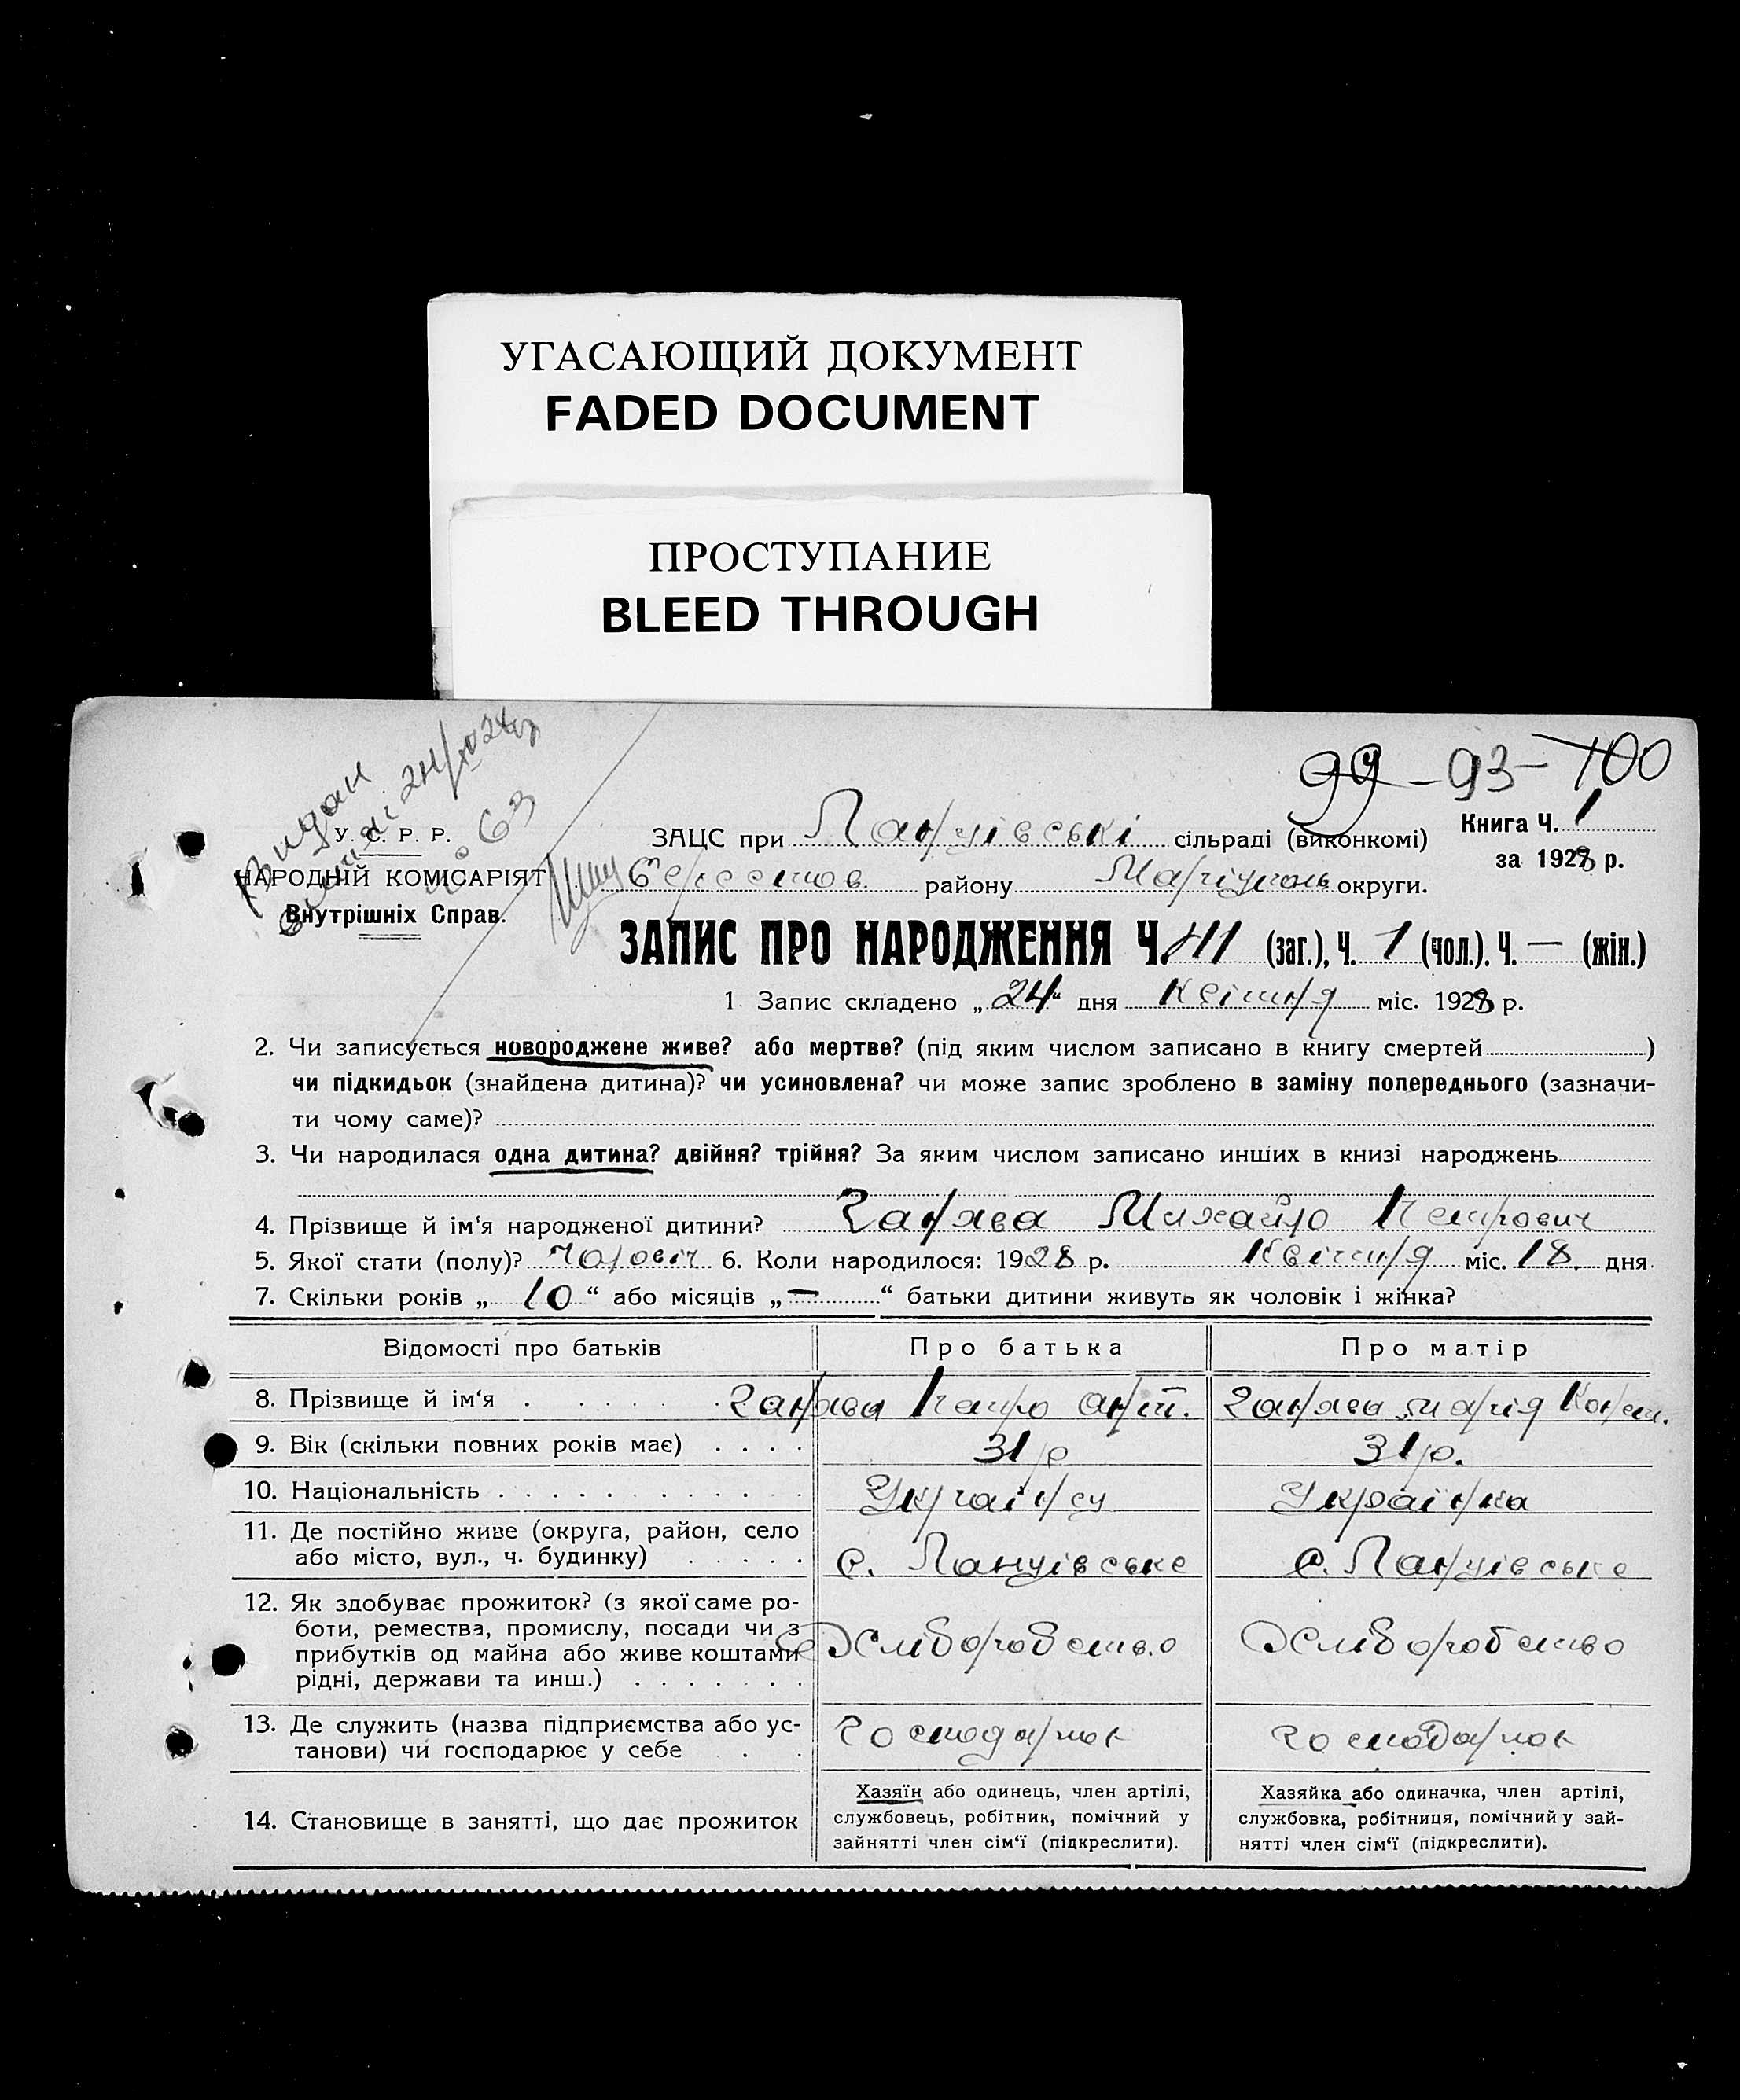 УГАСАЮЩИЙ ДОКУМЕНТ
FADED DOCUMENT
ПРОСТУПАНИЕ
BLEED THROUGH
99 - 93 - 100
№ 63
У. С. Р. Р.
НАРОДНІЙ КОМІСАРІЯТ
Внутрішніх Справ.
ЗАЦС при сільраді (виконкомі)
Книга Ч. 1
за 1928 р.
району Маріупольъ округи.
ЗАПИС ПРО НАРОДЖЕННЯ Ч. (заг.), Ч. 1 (чол.). Ч. — (жін.)
1. Запис складено „24“ дня Квітня міс. 1928 р.
2. Чи записується новороджене живе? або мертве? (під яким числом записано в книгу смертей )
чи підкидьок (знайдена дитина)? чи усиновлена? чи може запис зроблено в заміну попереднього (зазначи-
ти чому саме)?
3. Чи народилася одна дитина? двійня? трійня? За яким числом записано инших в книзі народжень
4. Прізвище й ім‘я народженої дитини? Михайло Петрович
5. Якої стати (полу)? Чоловіч 6. Коли народилося: 1928 р. Квітня міс. 18. дня
7. Скільки років „10“ або місяців „—“ батьки дитини живуть як чоловік і жінка?
Відомості про батьків Про батька Про матір
8. Прізвище й ім‘я Петро Ант. Марія Конст.
9. Вік (скільки повних років має) 31 р 31 р.
10. Національність Українец Українка
11. Де постійно живе (округа, район, село
або місто, вул., ч. будинку) с. Ланцівське с. Ланцівське
12. Як здобуває прожиток? (з якої саме ро-
боти, ремества, промислу, посади чи з
прибутків од майна або живе коштами
рідні, держави та инш.)
13. Де служить (назва підприємства або ус-
танови) чи господарює у себе
14. Становище в занятті, що дає прожиток
Хазяїн або одинець, член артілі,
службовець, робітник, помічний у
зайнятті член сім‘ї (підкреслити).
Хазяйка або одиначка, член артілі,
службовка, робітниця, помічний у зай-
нятті член сім‘ї (підкреслити).